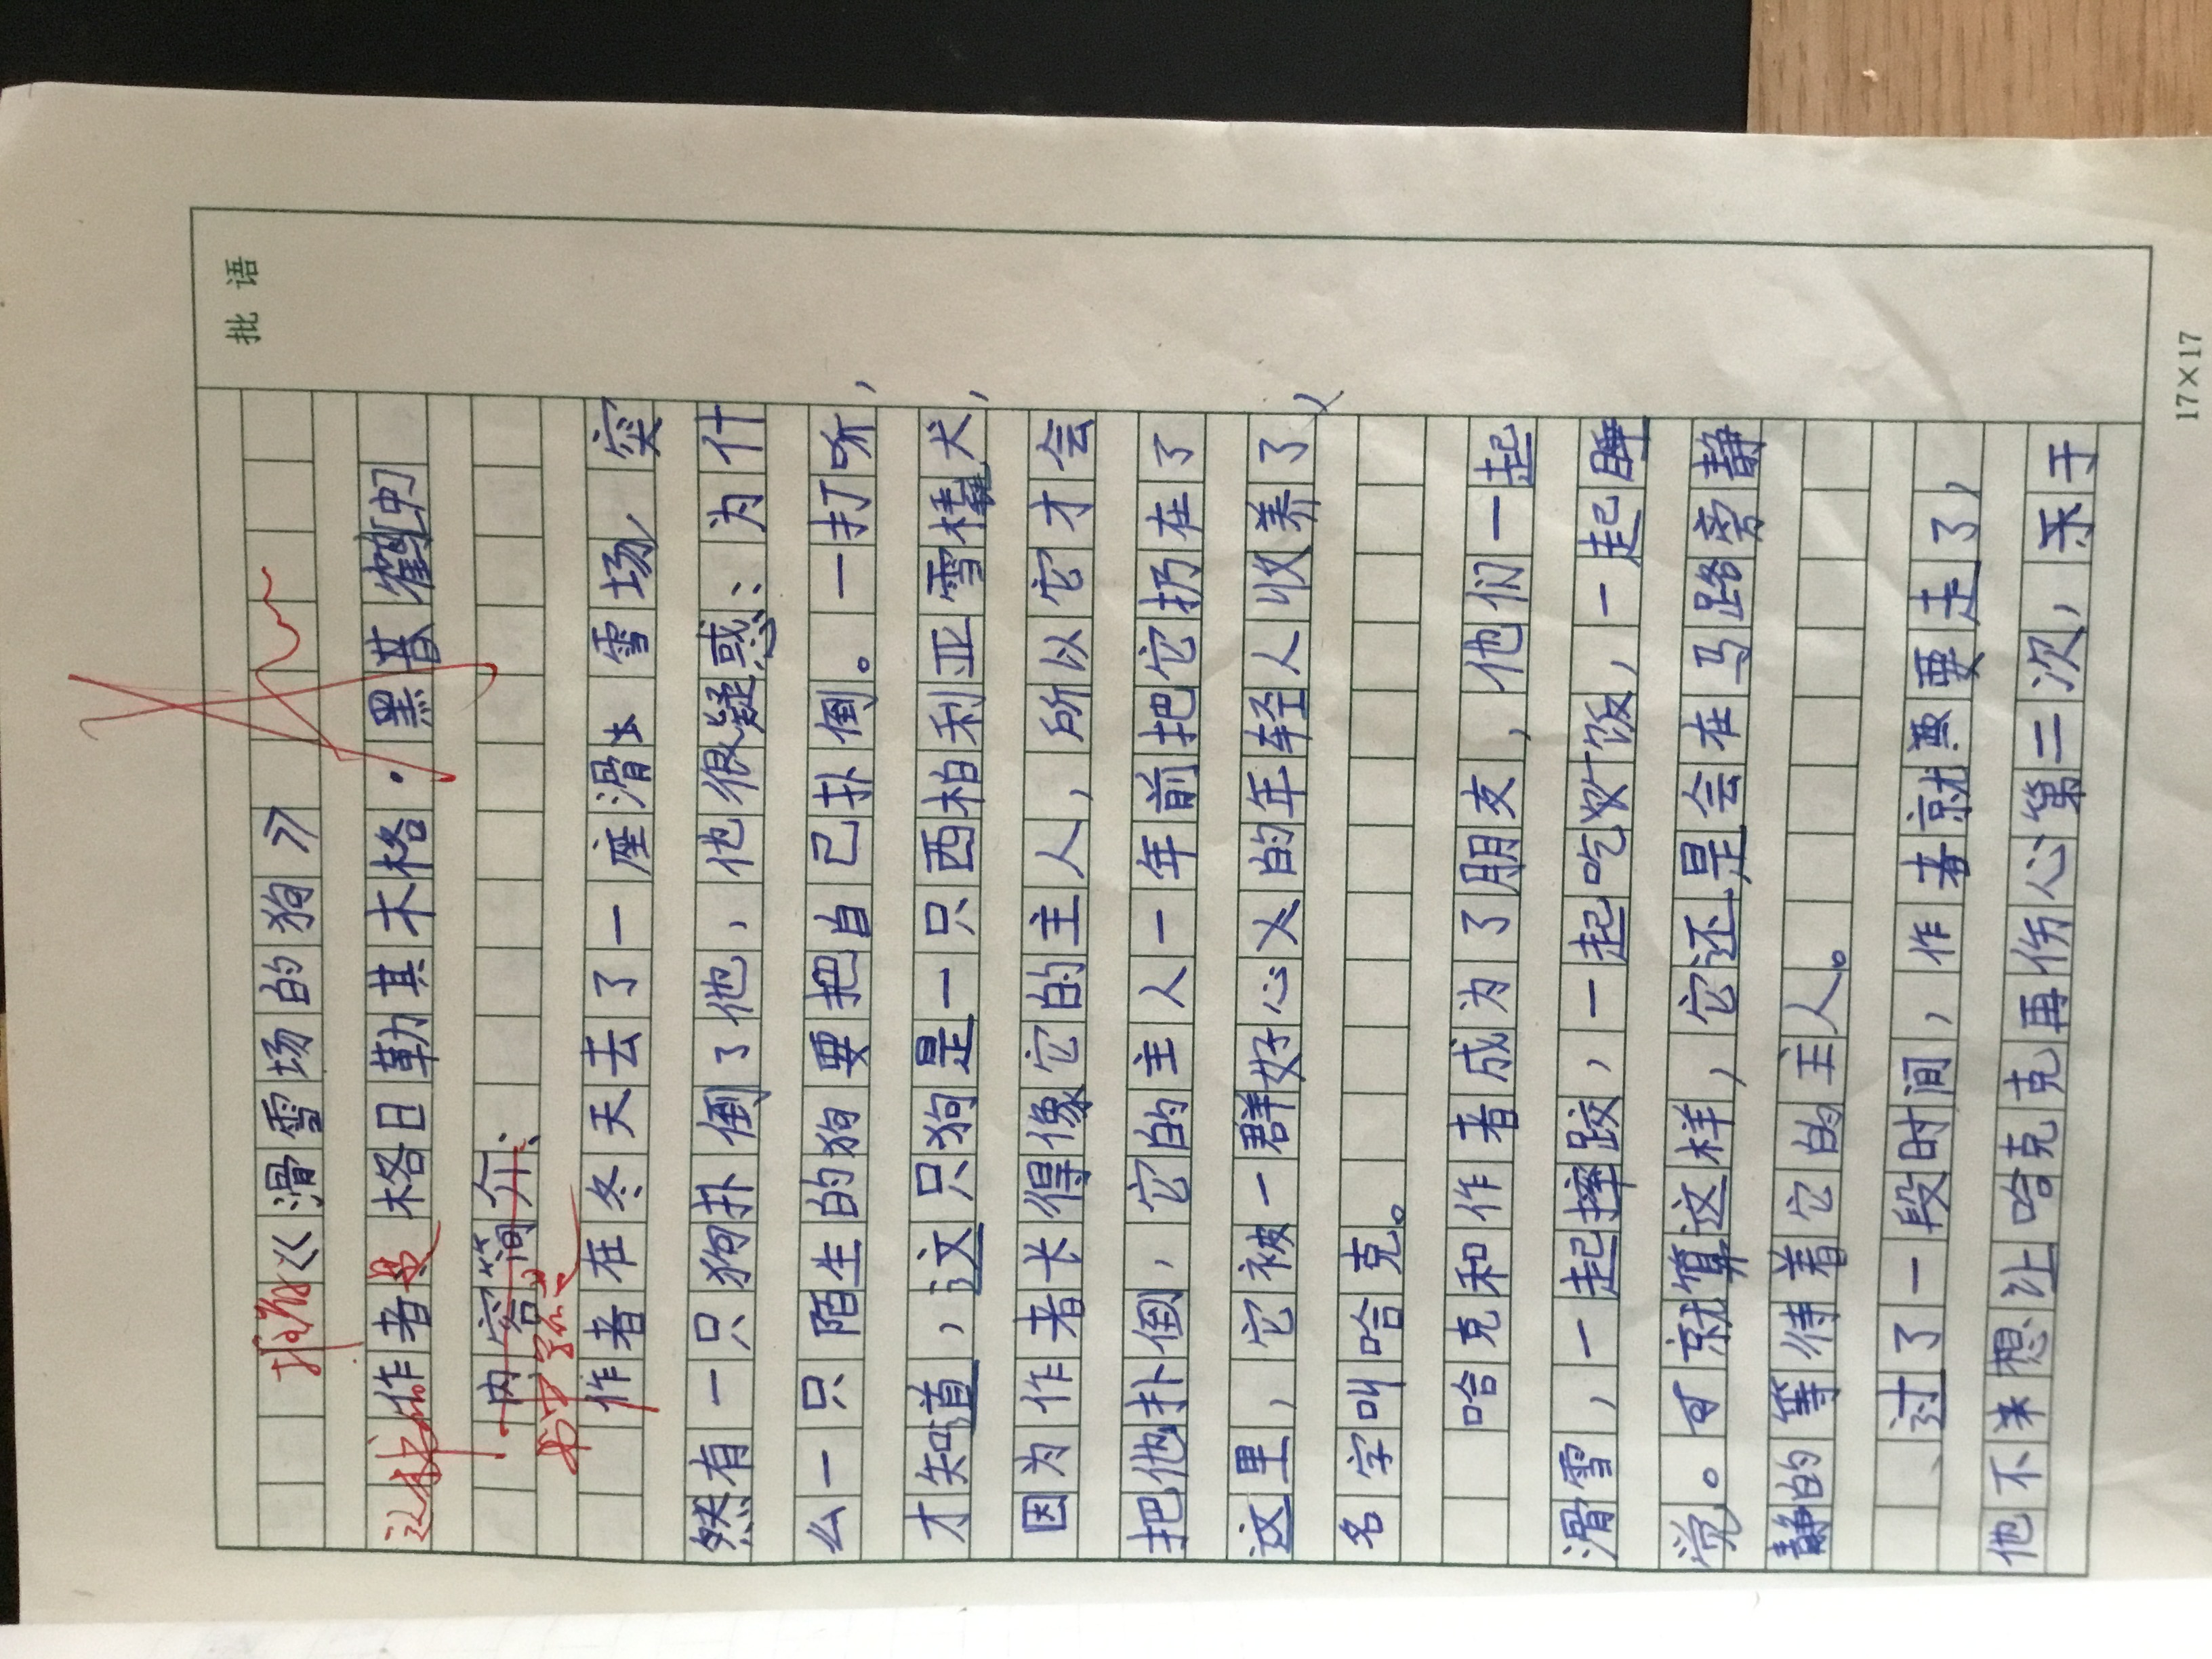 批语
推荐《滑雪场的狗》
这本书的作者是格日勒其木格·黑
内容简介:
书中写的是
作者在冬天去了一座滑雪场,突
然有一只狗扑倒了他,他很疑惑:为什
么一只陌生的狗要把自己扑倒。一打听,
才知道,这只狗是一只西柏利亚雪橇犬,
因为作者长得像它的主人,所以它才会
把他扑倒,它的主人一年前把它扔在了
这里,它被一群好心的年轻人收养了,
名字叫哈克。
哈克和作者成为了朋友,他们一起
滑雪,一起摔跤,一起吃饭,一起睡
觉。可就算这样,它还是会在马路旁静
静的等待着它的主人。
过了一段时间,作者就要走了,
他不想让哈克克再伤心第二次,于
17×17